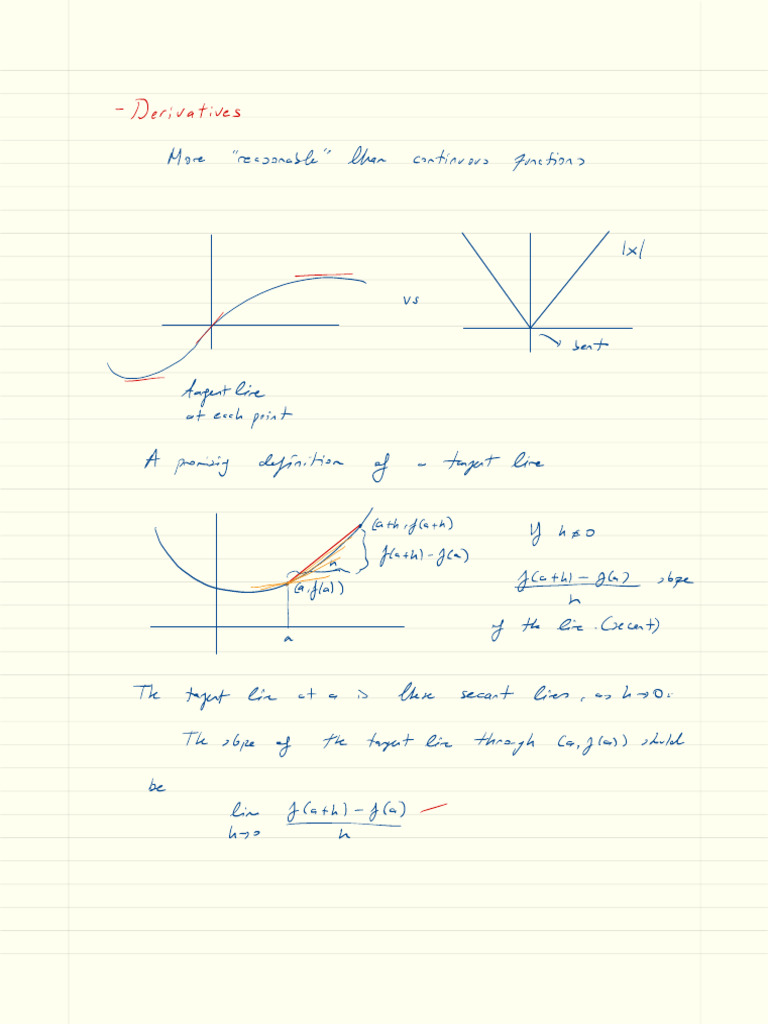 - Derivatives
More "reasonable" than continuous functions
|x|
vs
bent
tangent line
at each point
A promising definition of a tangent line
(a+h, f(a+h)
f(a+h) - f(a)
h
(a, f(a))
a
If h≠0
f(a+h) - f(a) slope
h
of the line. (secant)
The tangent line at a is these secant lines, as h→0.
The slope of the tangent line through (a, f(a)) should
be
lim f(a+h) - f(a)
h→0 h